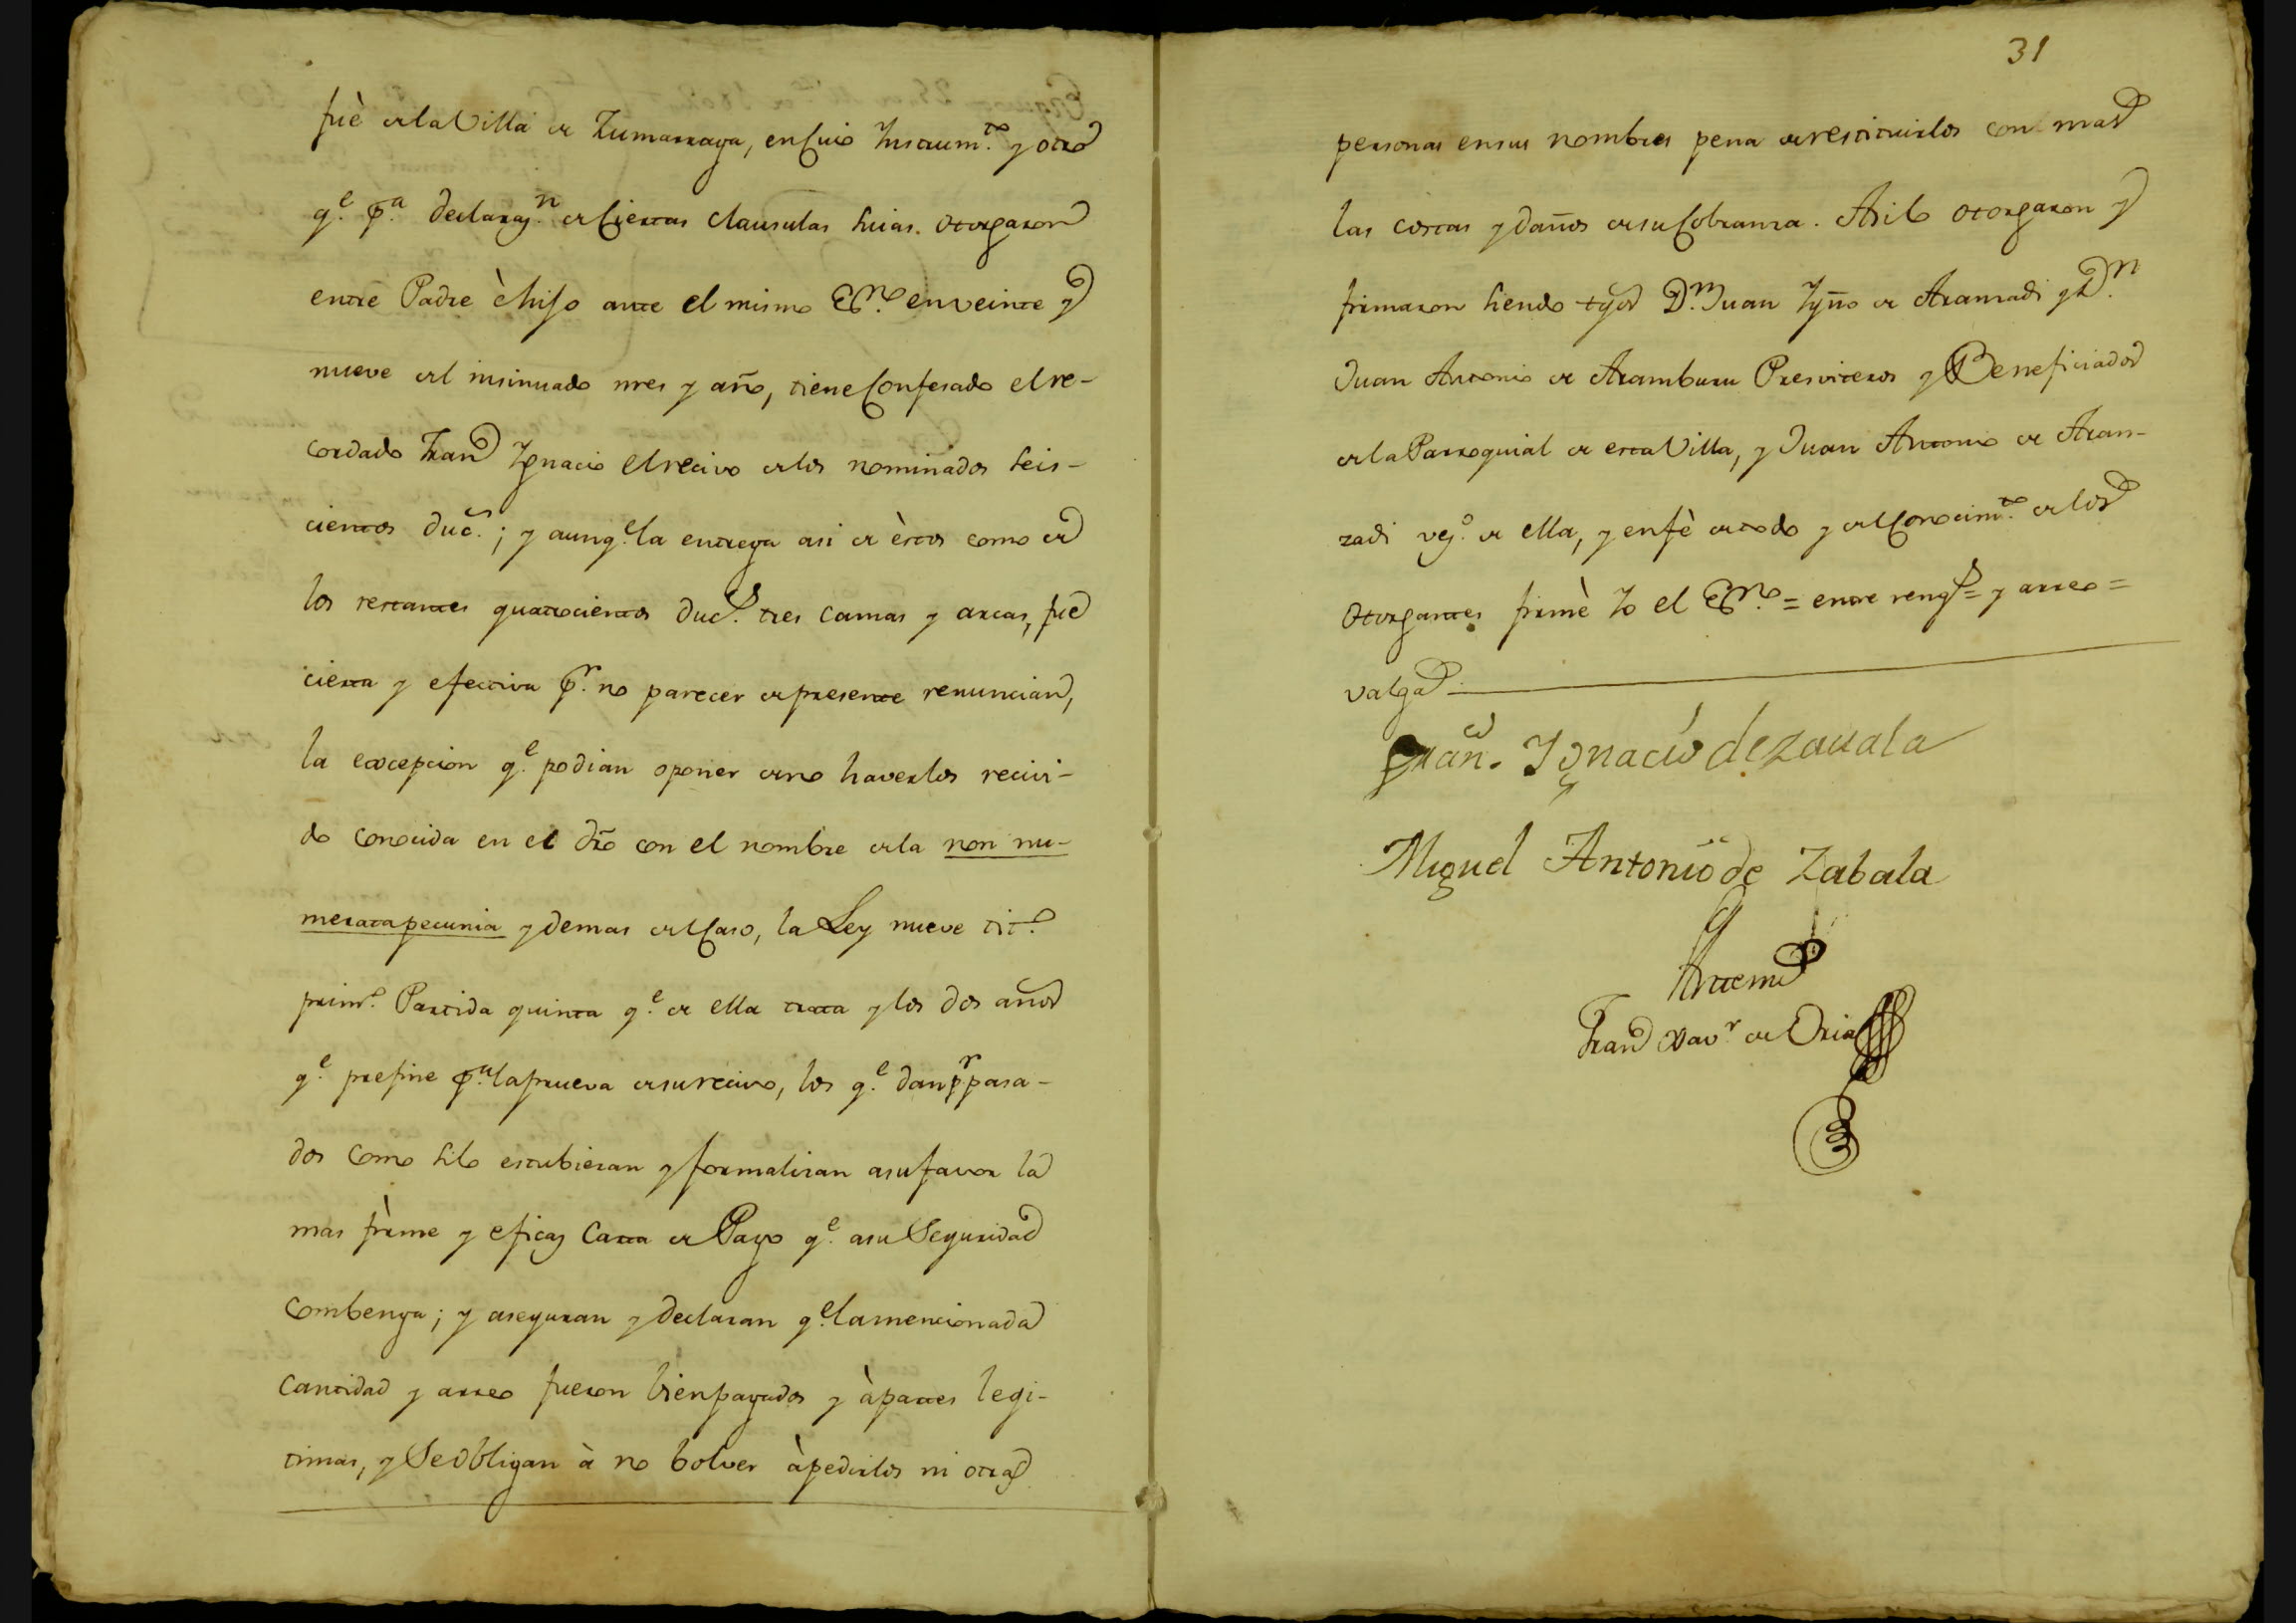 fuè de la Villa de Zumarraga, en Cuio Instrum.to y otro
q.e p.a declarac.n de Ciertas clausulas suias otorgaron
entre Padre è hijo ante el mismo Es.no en veinte y
nueve del insinuado mes y año, tiene Confesado el re-
cordado Fran.co Ygnacio el recivo de los nominados seis-
cientos duc.s; y aunq.e la entrega asi de èstos como de
los restantes quatrocientos duc.s tres camas y arcas, fue
cierta y efectiva p.r no parecer de presente renuncian,
la excepcion q.e podian oponer de no haverlos recivi-
do conocida en el dro con el nombre de la non nu-
merata pecunia y demas del Caso, la Ley nueve tit.o
prim.o Partida quinta q.e de ella trata y los dos años
q.e prefine p.a la prueva de su recivo, los q.e dan p.r pasa-
dos como si lo estubieran y formalizan a su favor la
mas firme y eficaz Carta de Pago q.e a su Seguridad
combenga; y aseguran y declaran q.e la mencionada
cantidad y arreo fueron bien pagados y à partes legi-
timas, y Se obligan à no bolver à pedirlos ni otras
31
personas en sus nombres pena de restituirlos con mas
las costas y daños de su Cobranza. Asi lo otorgaron y
firmaron siendo tgos D.n Juan Ygño de Aranzadi y D.n
Juan Antonio de Aramburu Presviteros y Beneficiados
de la Parroquial de esta Villa, y Juan Antonio de Aran-
zadi vez.o de ella, y en fè de todo y del Conocim.to de los
otorgantes firmè Yo el Es.no = entre reng.s = y arreo =
valga
Fran.co Ygnacio de Zauala
Miguel Antonio de Zabala
Antemi
Fran.co Xav.r de Oria